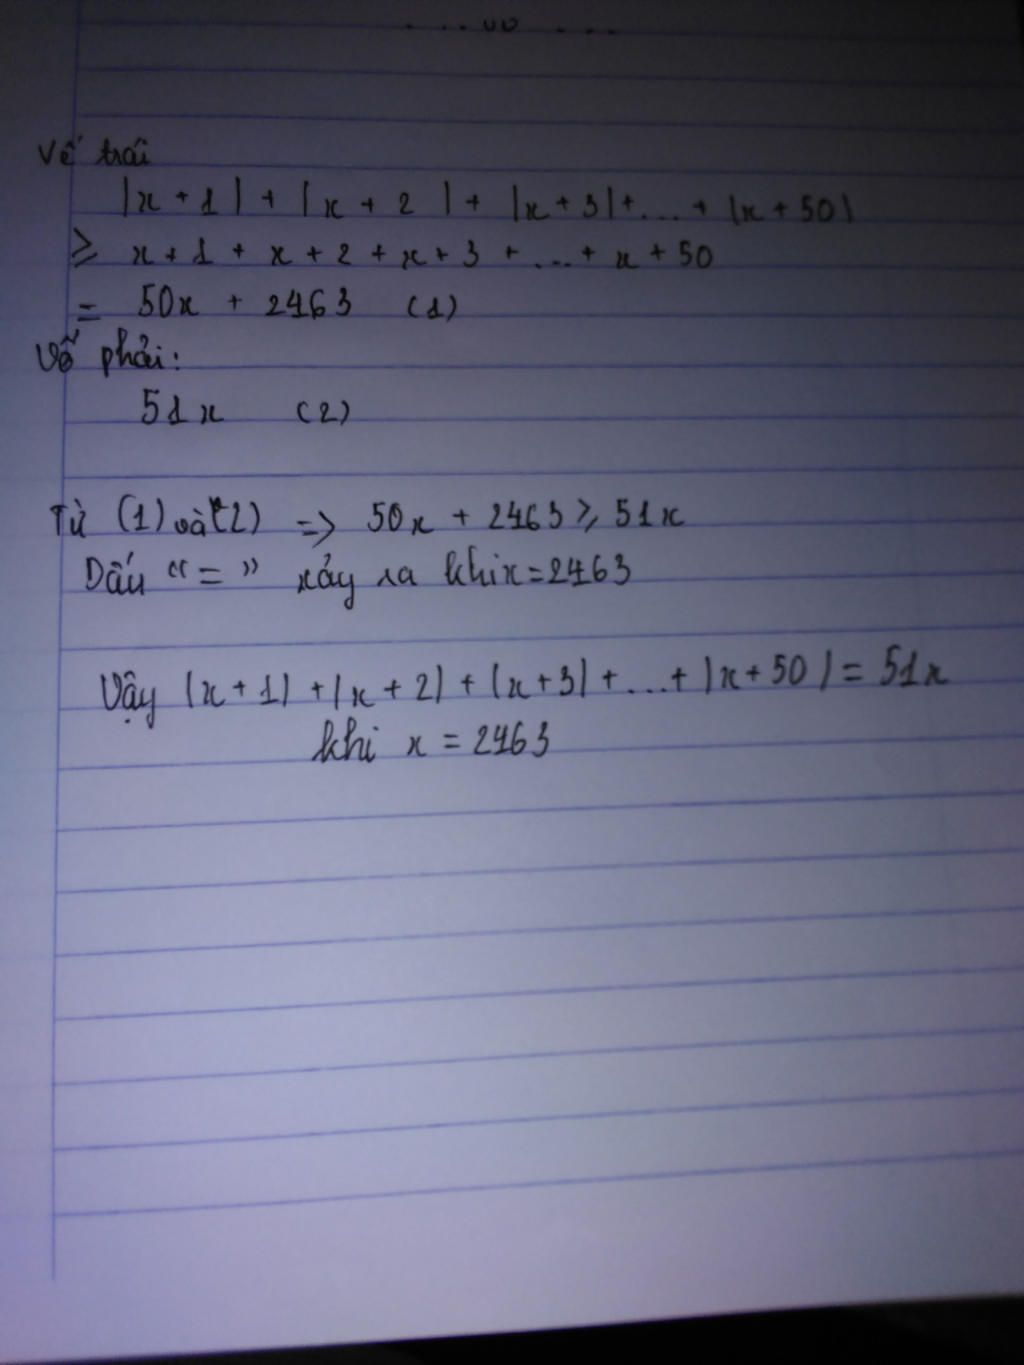 Vế trái
|x + 1| + |x + 2| + |x + 3| + ... + |x + 50|
≥ x + 1 + x + 2 + x + 3 + ... + x + 50
= 50x + 2463 (1)
Vế phải:
51x (2)
Từ (1) và (2) => 50x + 2463 ≥ 51x
Dấu "=" xảy ra khi x = 2463
Vậy |x + 1| + |x + 2| + |x + 3| + ... + |x + 50| = 51x
khi x = 2463